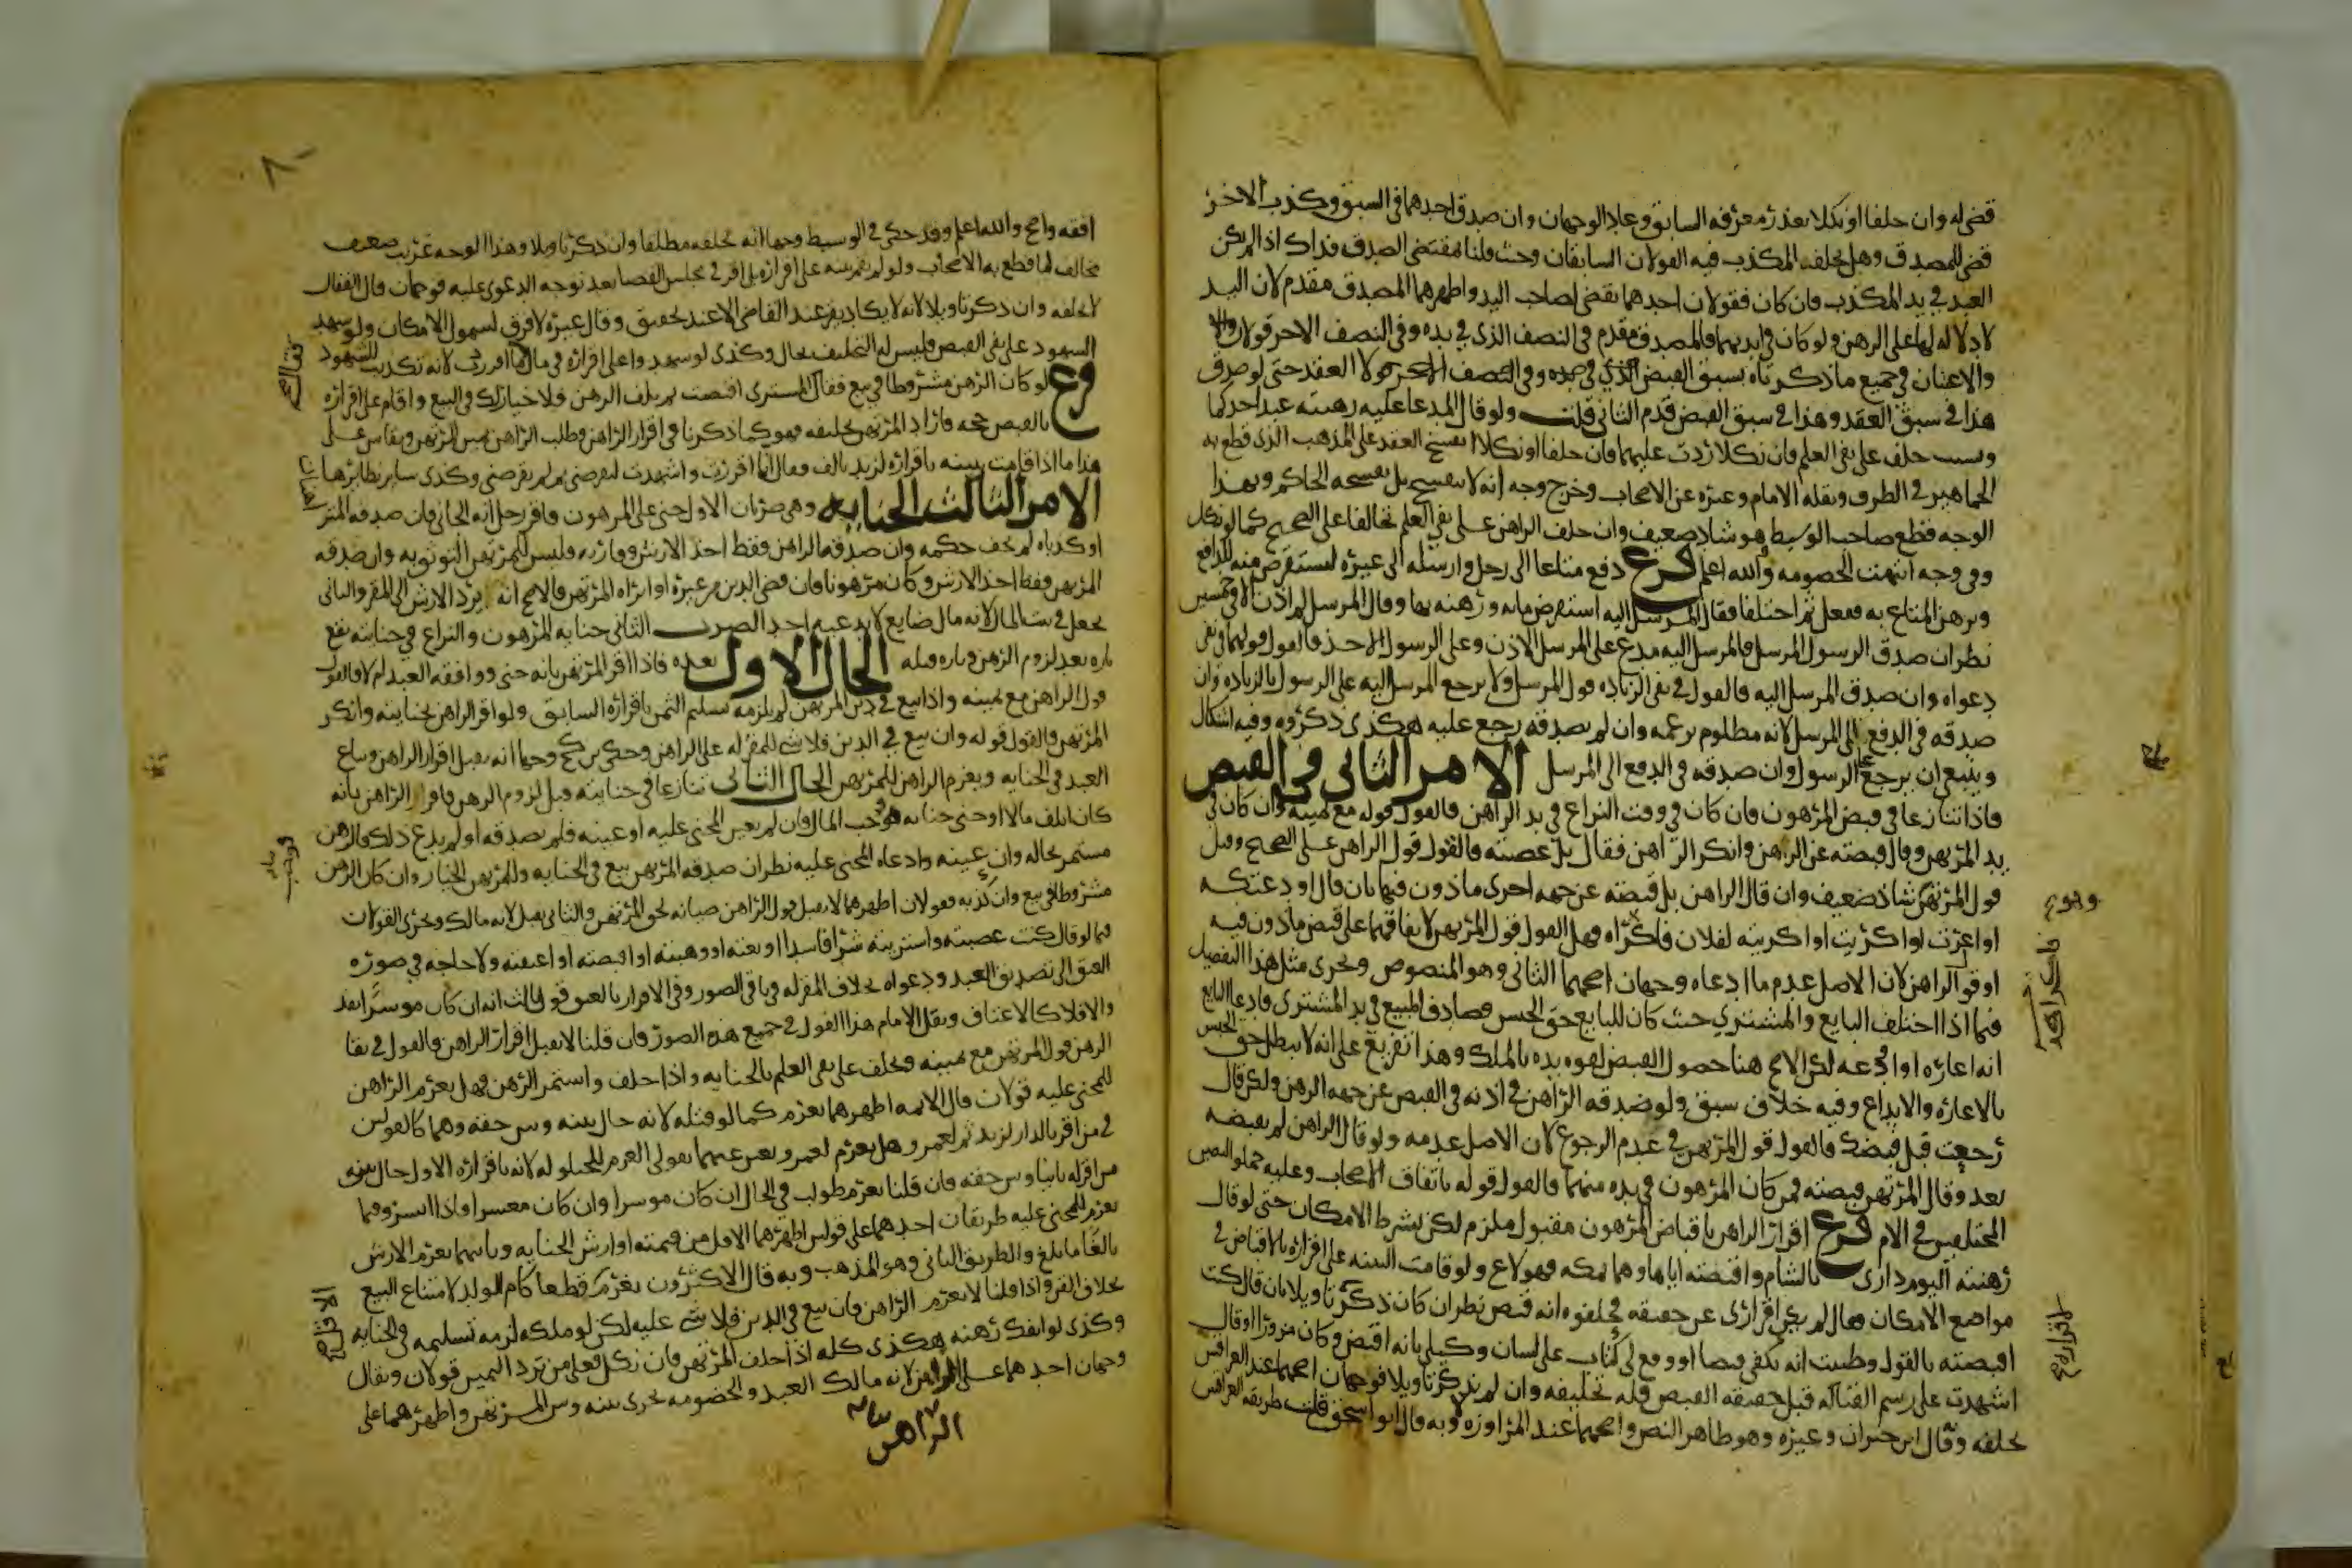 قضى له وان حلفا او نكلا تعذر معرفه السابق وعاد الوجهان وان صدق احدهما فى السبق وكذب الاخر
قضى للمصدق وهل يحلف المكذب فيه القولان السابقان وحيث قلنا مقتضى الصدق فذاك اذا لم يكن
العبد فى يد المكذب فان كان فقولان احدهما يقضى لصاحب اليد واظهرهما المصدق مقدم لان اليد
لا دلاله لها على الرهن ولو كان فى ايديهما فالمصدق مقدم فى النصف الذى فى يده وفى النصف الاخر قولان
والاعتبار فى جميع ما ذكرناه بسبق القبض لا العقد حتى لو صدق
هذا فى سبق العقد وهذا فى سبق القبض قدم الثانى قلت ولو قال المدعا عليه رهنته عند احدكما
ونسيت حلف على نفى العلم فان نكلا ردت عليهما فان حلفا او نكلا انفسخ العقد على المذهب الذى قطع به
الجماهير فى الطرق ونقله الامام وغيره عن الاصحاب وخرج وجه انه لا ينفسخ بل يفسخه الحاكم وبهذا
الوجه قطع صاحب الوسيط وهو شاذ ضعيف وان حلف الراهن على نفى العلم تحالفا على الصحيح كما لو نكل
وفى وجه انتهت الخصومه والله اعلم فرع دفع متاعا الى رجل وارسله الى غيره ليستقرض منه للدافع
ويرهن المتاع به ففعل ثم اختلفا فقال المرسل اليه استقرض مايه ورهنه بها وقال المرسل لم اذن الا فى خمسين
نظر ان صدق الرسول المرسل فالمرسل اليه مدع على المرسل الاذن وعلى الرسول الاخذ فالقول قولهما فى نفى
دعواه وان صدق المرسل اليه فالقول فى نفى الزياده قول المرسل ولا يرجع المرسل اليه على الرسول بالزياده ان
صدقه فى الدفع الى المرسل لانه مظلوم بزعمه وان لم يصدقه رجع عليه هكذى ذكروه وفيه اشكال
وينبغى ان يرجع على الرسول وان صدقه فى الدفع الى المرسل الامر الثانى فى القبض
فاذا تنازعا فى قبض المرهون فان كان فى وقت النزاع فى يد الراهن فالقول قوله مع يمينه وان كان فى
يد المرتهن وقال قبضته عن الرهن وانكر الراهن فقال بل غصبته فالقول قول الراهن على الصحيح وقيل
قول المرتهن شاذ ضعيف وان قال الراهن بل قبضته عن جهه اخرى ماذون فيها بان قال اودعتكه
او اعرت او اكريت او اكريته لفلان فاكراه فهل القول قول المرتهن لاتفاقهما على قبض ماذون فيه
او قول الراهن لان الاصل عدم ما ادعاه وجهان اصحهما الثانى وهو المنصوص ويجرى مثل هذا التفصيل
فيما اذا اختلف البايع والمشترى حيث كان للبايع حق الحبس فصادف المبيع فى يد المشترى وادعا البايع
انه اعاره او اودعه لكن الاصح هنا حصول القبض لقوه يده بالملك وهذا تفريع على انه لا يبطل حق الحبس
بالاعاره والايداع وفيه خلاف سبق ولو صدقه الراهن فى اذنه فى القبض عن جهه الرهن ولكن قال
رجعت قبل قبضك فالقول قول المرتهن فى عدم الرجوع لان الاصل عدمه ولو قال الراهن لم يقبضه
بعد وقال المرتهن قبضته فمن كان المرهون فى يده منهما فالقول قوله باتفاق الاصحاب وعليه حملوا النصين
المختلفين فى الام فرع اقرار الراهن باقباض المرهون مقبول ملزم لكن بشرط الامكان حتى لو قال
رهنته اليوم دارى بالشام واقبضته اياها وهما بمكه فهو لاغ ولو قامت البينه على اقراره بالاقباض فى
مواضع الامكان فقال لم يكن اقرارى عن حقيقه فحلفوه انه قبض نظر ان كان ذكر تاويلا بان قال كنت
اقبضته بالقول وظننت انه يكفى قبضا او وقع لى كتاب على لسان وكيلى بانه اقبض وكان مزورا او قال
اشهدت على رسم القباله قبل حقيقه القبض فله تحليفه وان لم يذكر تاويلا فوجهان اصحهما عند العراقيين
يحلفه وقال ابن خيران وغيره وهو ظاهر النص واصحهما عند المراوزه لا وبه قال ابو اسحق قلت طريقه العراقيين
افقه واصح والله اعلم وقد حكى فى الوسيط وجها انه يحلفه مطلقا وان ذكر تاويلا وهذا الوجه غريب ضعيف
مخالف لما قطع به الاصحاب ولو لم تقم بينه على اقراره بل اقر فى مجلس القضا بعد توجه الدعوى عليه فوجهان قال القفال
لا يحلفه وان ذكر تاويلا لانه لا يكاد يقر عند القاضى الا عند تحقيق وقال غيره لا فرق لشمول الامكان ولو شهد
الشهود على نفس القبض فليس له التحليف بحال وكذى لو شهدوا على اقراره فقال ما اقررت لانه تكذيب للشهود
فرع لو كان الرهن مشروطا فى بيع فقال المشترى اقبضت ثم تلف الرهن فلا خيار لك فى البيع واقام على اقراره
بالقبض حجه فاراد المرتهن تحليفه فهو كما ذكرنا فى اقرار الراهن وطلب الراهن يمين المرتهن ويقاس على
هذا ما اذا قامت بينه باقراره لزيد بالف فقال انما اقررت واشهدت ليقرضنى ثم لم يقرضنى وكذى ساير نظايرها
الامر الثالث الجنايه وهى ضربان الاول جنى على المرهون فاقر رجل انه الجانى فان صدقه المتراهنان
او كذباه لم يخف حكمه وان صدقه الراهن فقط اخذ الارش وفاز به وليس للمرتهن التوثق به وان صدقه
المرتهن فقط اخذ الارش وكان مرهونا فان قضى الدين من غيره او ابراه المرتهن فالاصح انه يرد الارش الى المقر والثانى
يجعل فى بيت المال لانه مال ضايع لا يدعيه احد الضرب الثانى جنايه المرهون والنزاع فى جنايته يقع
تاره بعد لزوم الرهن وتاره قبله الحال الاول بعده فاذا اقر المرتهن بانه جنى ووافقه العبد ام لا فالقول
قول الراهن مع يمينه واذا بيع فى دين المرتهن لم يلزمه تسليم الثمن باقراره السابق ولو اقر الراهن بجنايته وانكر
المرتهن فالقول قوله وان بيع فى الدين فلا شى للمقر له على الراهن وحكى ابن كج وجها انه يقبل اقرار الراهن ويباع
العبد فى الجنايه ويغرم الراهن للمرتهن الحال الثانى تنازعا فى جنايته قبل لزوم الرهن فاقر الراهن بانه
كان اتلف مالا او جنى جنايه توجب المال فان لم يعين المجنى عليه او عينه فلم يصدقه او لم يدع ذلك فالرهن
مستمر بحاله وان عينه وادعاه المجنى عليه نظر ان صدقه المرتهن بيع فى الجنايه وللمرتهن الخيار وان كان الرهن
مشروطا فى بيع وان كذبه فقولان اظهرهما لا يقبل قول الراهن صيانه لحق المرتهن والثانى يقبل لانه مالك ويجرى القولان
فيما لو قال كنت غصبته او اشتريته شرا فاسدا او بعته او وهبته او اقبضته او اعتقته ولا حاجه فى صوره
العتق الى تصديق العبد ودعواه بخلاف المقر له فى باقى الصور وفى الاقرار بالعتق قول ثالث انه ان كان موسرا نفذ
والا فلا كالاعتاق ونقل الامام هذا القول فى جميع هذه الصور فان قلنا لا يقبل اقرار الراهن فالقول فى بقا
الرهن قول المرتهن مع يمينه ويحلف على نفى العلم بالجنايه واذا حلف واستمر الرهن فهل يغرم الراهن
للمجنى عليه قولان قال الائمه اظهرهما يغرم كما لو قتله لانه حال بينه وبين حقه وهما كالقولين
فى من اقر بالدار لزيد ثم لعمرو هل يغرم لعمرو ويعبر عنهما بقولى الغرم للحيلوله لانه باقراره الاول حال بين
من اقر له ثانيا وبين حقه فان قلنا يغرم طولب فى الحال ان كان موسرا وان كان معسرا فاذا ايسر وفيما
يغرم للمجنى عليه طريقان احدهما على قولين اظهرهما الاقل من قيمته او ارش الجنايه وثانيهما يغرم الارش
بالغا ما بلغ والطريق الثانى وهو المذهب وبه قال الاكثرون يغرم قطعا كام الولد لامتناع البيع
بخلاف القن واذا قلنا لا يغرم الراهن فان بيع فى الدين فلا شى عليه لكن لو ملكه لزمه تسليمه فى الجنايه
وكذى لو انفك رهنه هكذى كله اذا حلف المرتهن فان نكل فعلى من ترد اليمين قولان ويقال
وجهان احدهما على الراهن لانه مالك العبد والخصومه تجرى بينه وبين المرتهن واظهرهما على
الراهن